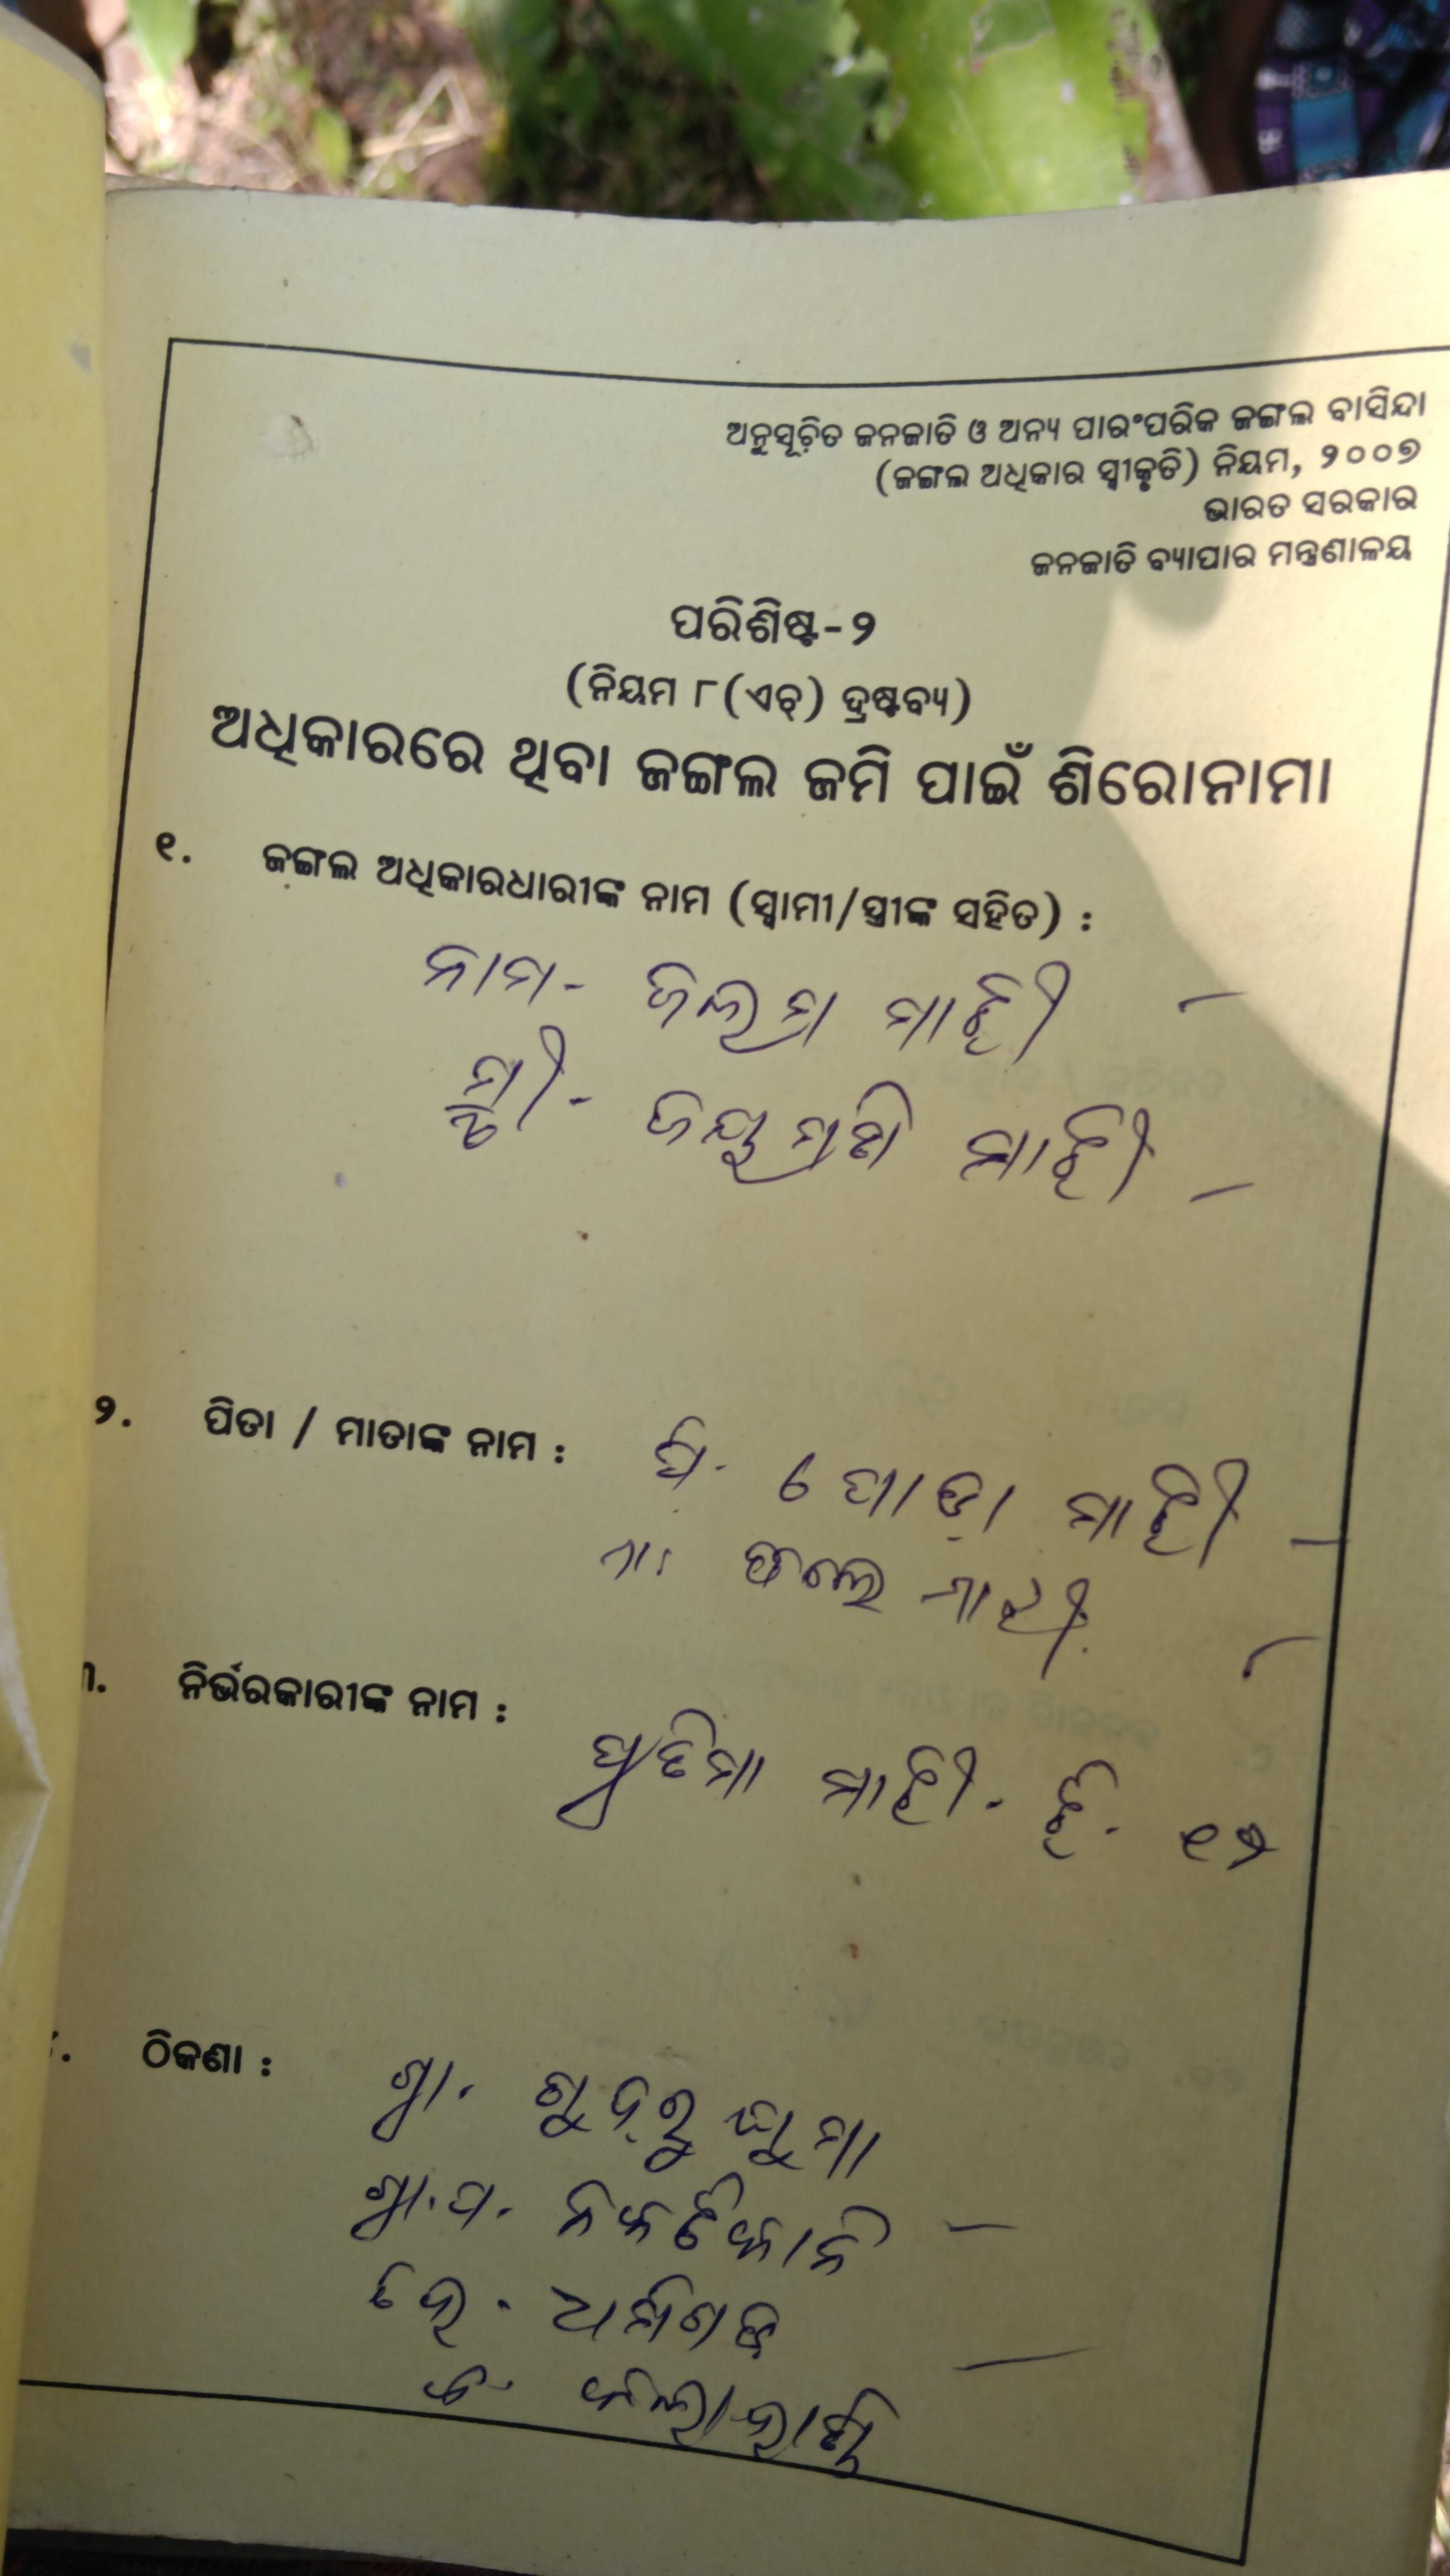 ଅନୁସୂଚିତ ଜନଜାତି ଓ ଅନ୍ୟ ପାରଂପରିକ ଜଙ୍ଗଲ ବାସିନ୍ଦା
(ଜଙ୍ଗଲ ଅଧିକାର ସ୍ୱୀକୃତି) ନିୟମ, ୨୦୦୭
ଭାରତ ସରକାର
ଜନଜାତି ବ୍ୟାପାର ମନ୍ତ୍ରଣାଳୟ
ପରିଶିଷ୍ଟ-୨
(ନିୟମ ୮(ଏଚ୍) ଦ୍ରଷ୍ଟବ୍ୟ)
ଅଧିକାରରେ ଥିବା ଜଙ୍ଗଲ ଜମି ପାଇଁ ଶିରୋନାମା
୧. ଜଙ୍ଗଲ ଅଧିକାରଧାରୀଙ୍କ ନାମ (ସ୍ୱାମୀ/ସ୍ତ୍ରୀଙ୍କ ସହିତ) :
ନାମ- ଜିଲମ ମାଝୀ
ସ୍ତ୍ରୀ- ଜୟମଣି ମାଝୀ
୨. ପିତା / ମାତାଙ୍କ ନାମ : ପି. ପୋଡ଼ା ମାଝୀ
ମା: ଫଲେ ମାଝୀ
୩. ନିର୍ଭରକାରୀଙ୍କ ନାମ :
ପ୍ରତିମା ମାଝୀ. ଝି. ୧୨
ଠିକଣା : ଗ୍ରା.
ଗ୍ରା.ପ.